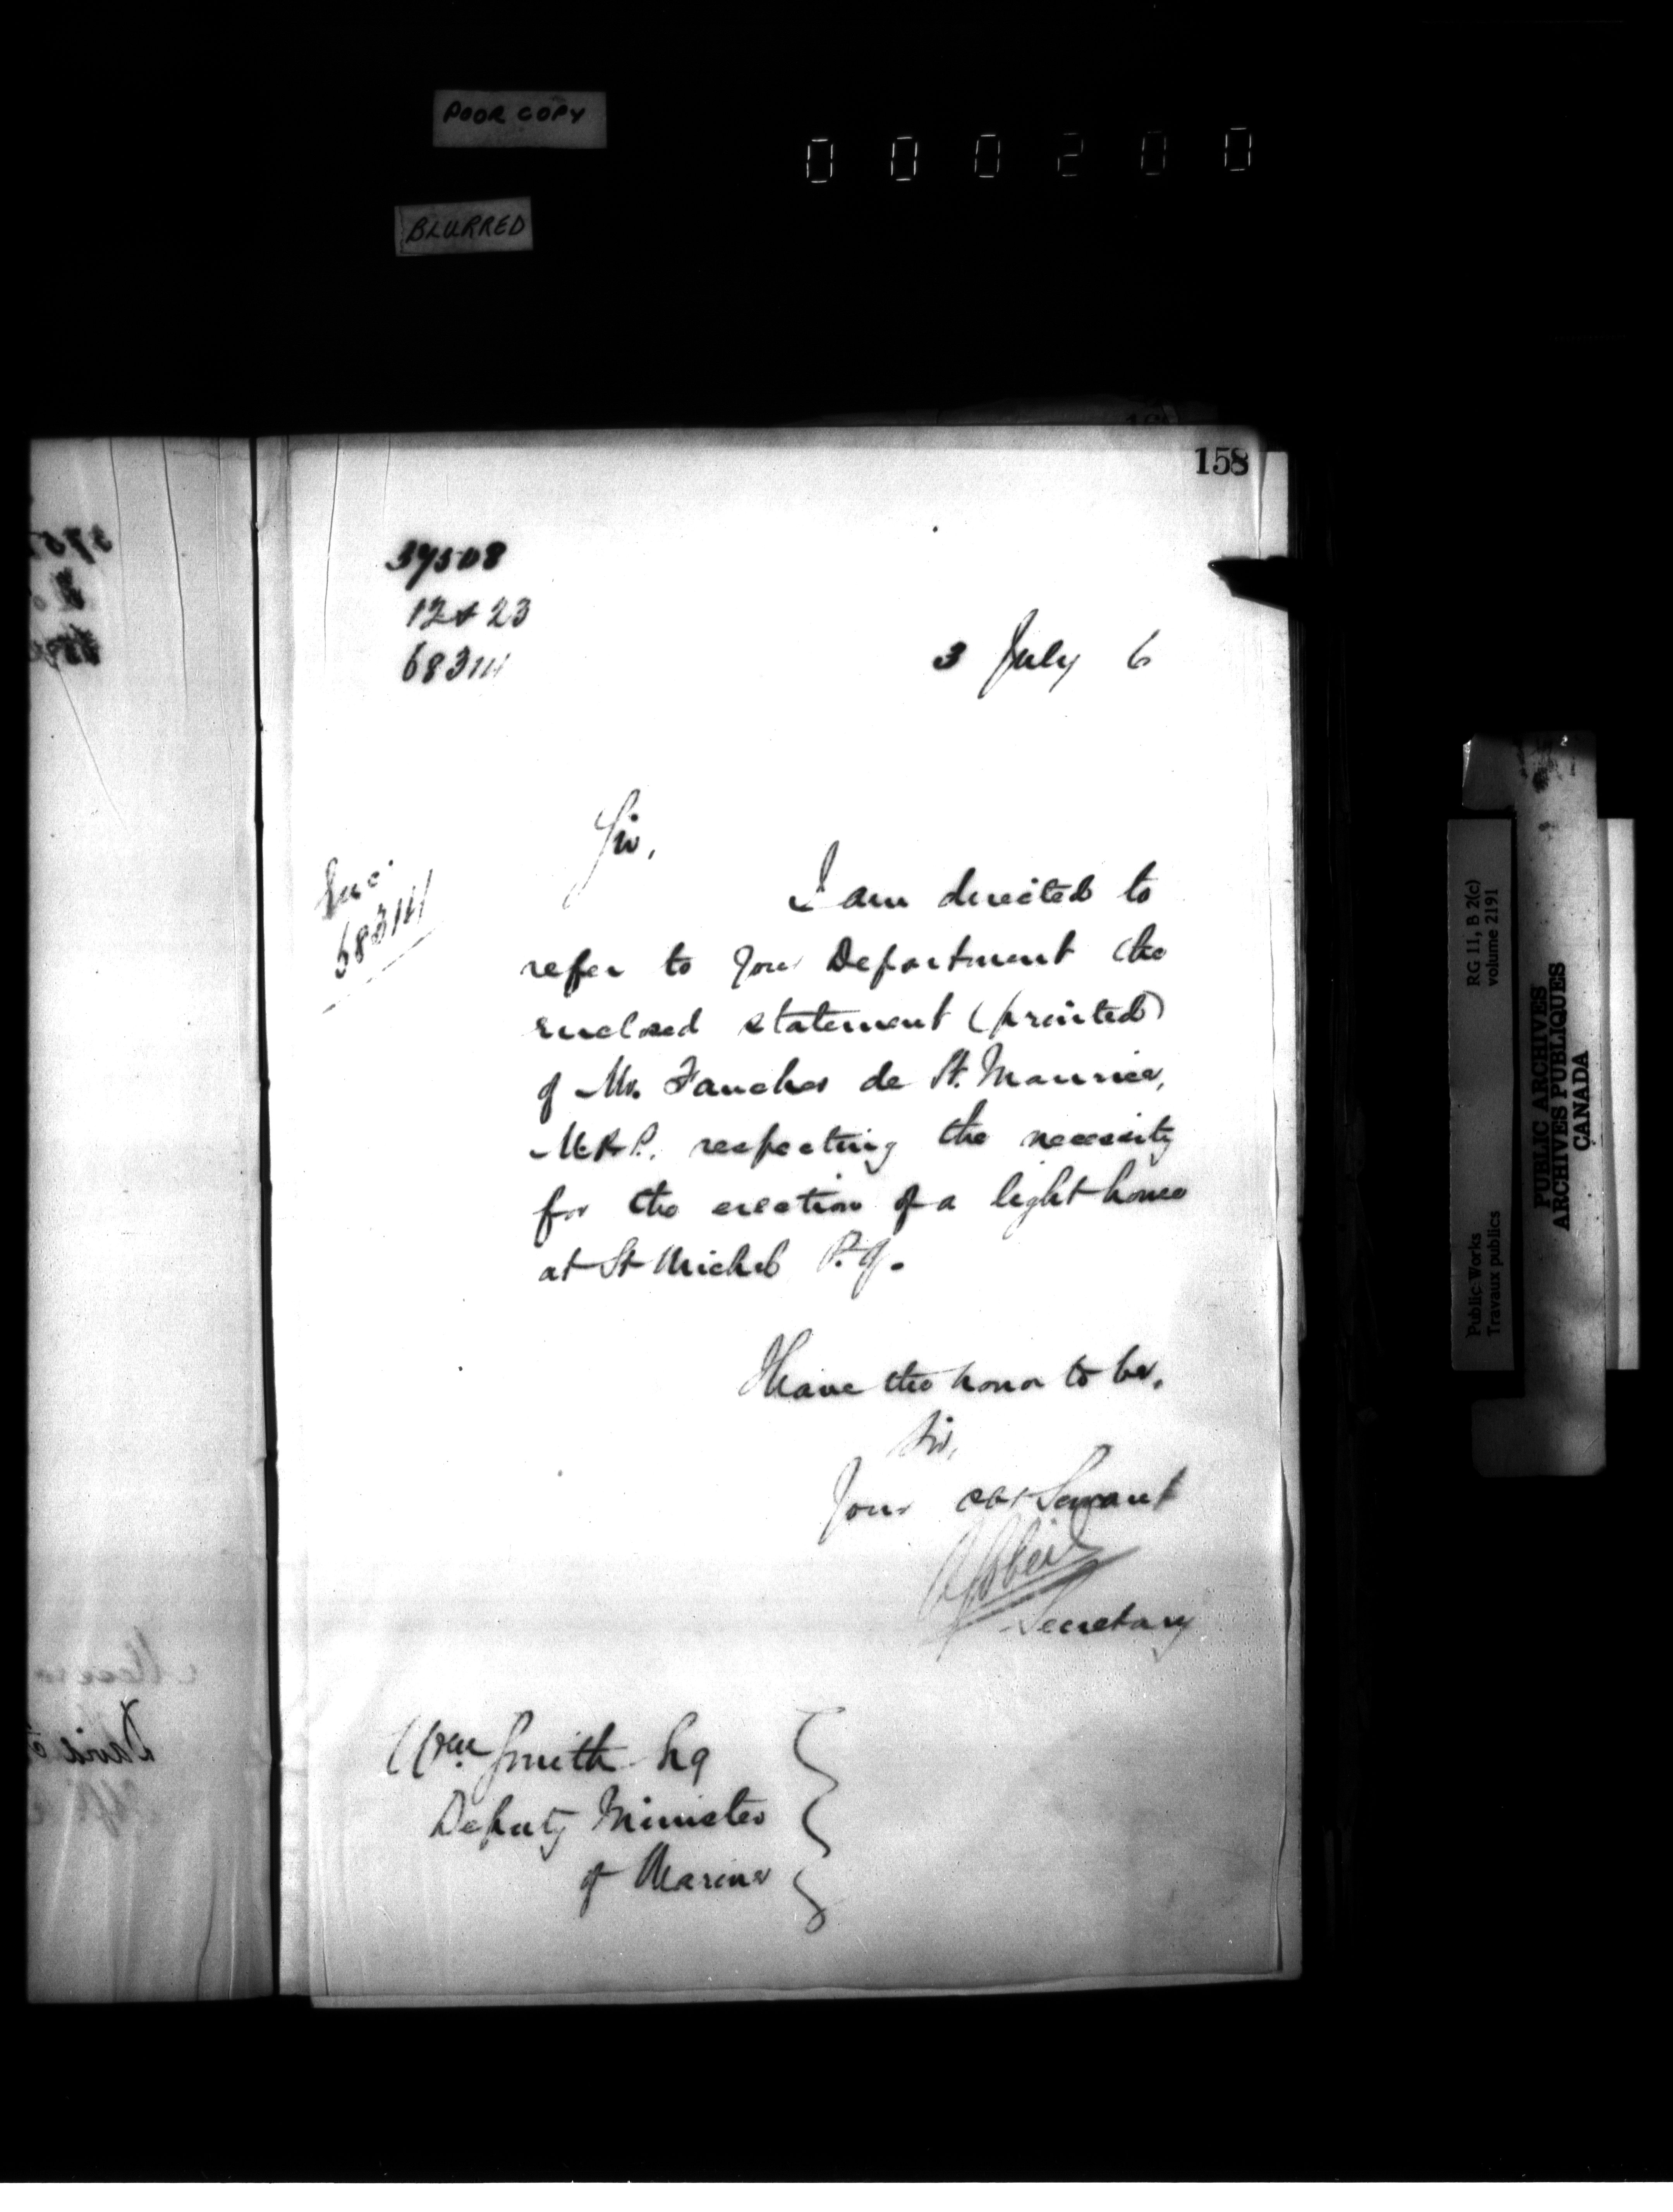 POOR COPY
000200
BLURRED
158
37508
12 & 23
68314
3 July 6
Sir,
Enc.
68314
I am directed to
refer to your Department the
enclosed statement (printed)
of Mr. Faucher de St. Maurice,
M.P.P. respecting the necessity
for the erection of a light house
at St Michel P.Q.
I have the honor to be,
Sir,
Your obt Servant
Secretary
Wm. Smith Esq
Deputy Minister
of Marine
Public Works
Travaux publics
RG 11, B 2(c)
volume 2191
PUBLIC ARCHIVES
ARCHIVES PUBLIQUES
CANADA